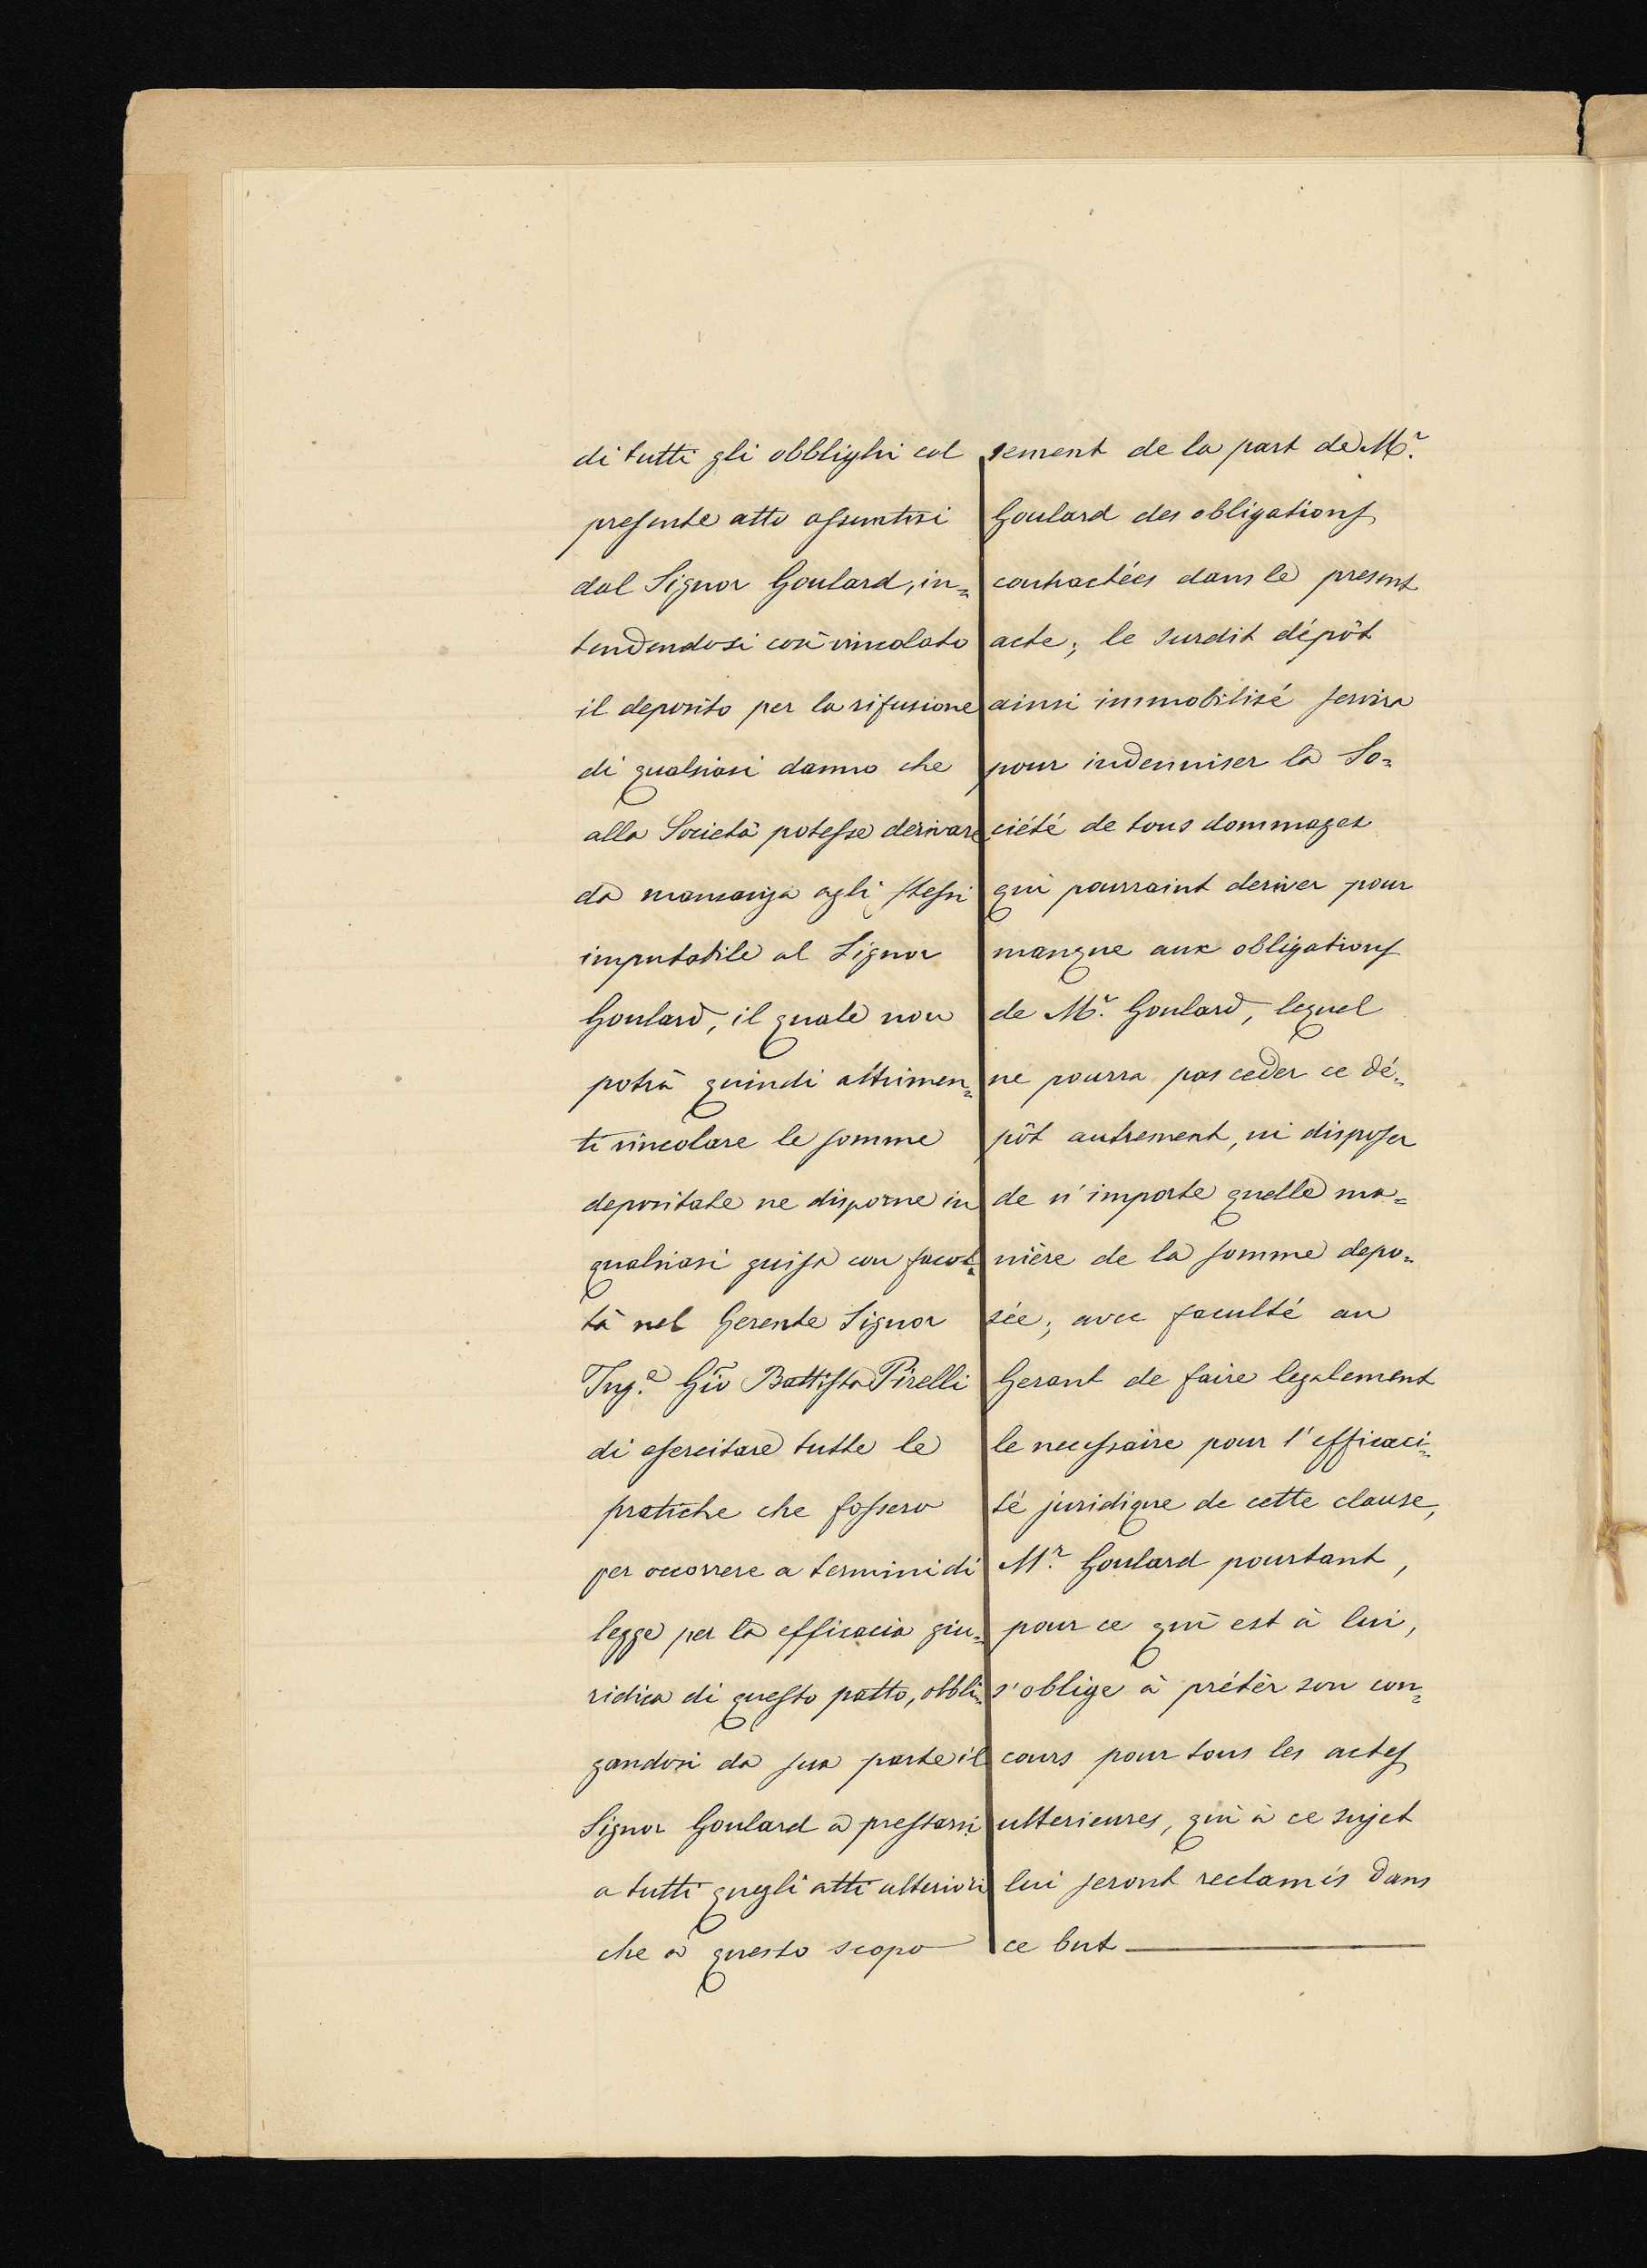 di tutti gli obblighi col
presente atto assuntisi
dal Signor Goulard, in=
tendendosi così vincolato
il deposito per la rifusione
di qualsiasi danno che
alla Società potesse derivare
da mancanza agli stessi
imputabile al Signor
Goulard, il quale non
potrà quindi altrimen=
ti vincolare le somme
depositate ne disporne in
qualsiasi guisa con facol=
tà nel Gerente Signor
Ing.e Gio Battista Pirelli
di esercitare tutte le
pratiche che fossero
per occorrere a termini di
legge per la efficacia giu=
ridica di questo patto, obbli=
gandosi da sua parte il
Signor Goulard a prestarsi
a tutti quegli atti ulteriori
che a questo scopo
sement de la part de Mr.
Goulard des obligations
contractées dans le present
acte; le susdit dépôt
ainsi immobilisé servira
pour indemniser la So=
ciété de tous dommages
qui pourraint deriver pour
manque aux obligations
de Mr. Goulard, lequel
ne pourra pas ceder ce dé=
pôt autrement, ni disposer
de n'importe quelle ma=
nière de la somme depo=
sée; avec faculté au
Gerant de faire legalement
le necessaire pour l'efficaci=
té juridique de cette clause,
Mr. Goulard pourtant,
pour ce qui est à lui,
s'oblige à prétèr son con=
cours pour tous les actes
ulterieures, qui à ce sujet
lui seront reclamés dans
ce but